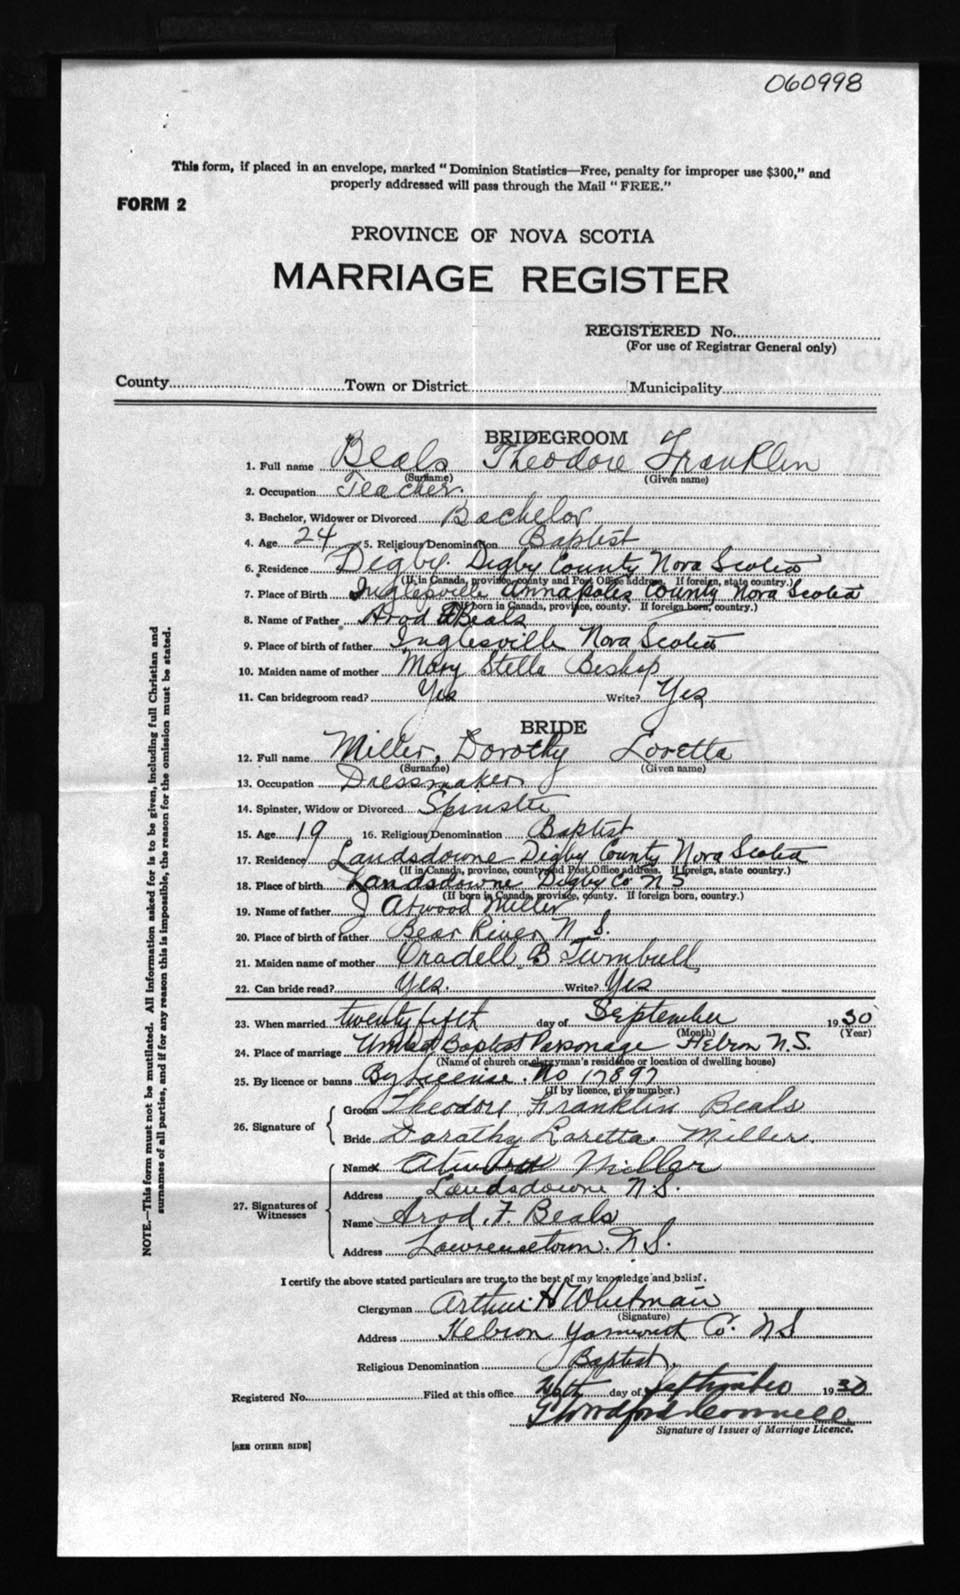 060998
This form, if placed in an envelope, marked "Dominion Statistics—Free, penalty for improper use $300," and
properly addressed will pass through the Mail "FREE."
FORM 2
PROVINCE OF NOVA SCOTIA
MARRIAGE REGISTER
REGISTERED No.
(For use of Registrar General only)
County Town or District Municipality
BRIDEGROOM
1. Full name Beals Theodore Franklin
(Surname) (Given name)
2. Occupation Teacher.
3. Bachelor, Widower or Divorced Bachelor
4. Age 24 5. Religious Denomination Baptist
6. Residence Digby. Digby County Nova Scotia
(If in Canada, province, county and Post Office address. If foreign, state country.)
7. Place of Birth Inglesville Annapolis County Nova Scotia
(If born in Canada, province, county. If foreign born, country.)
8. Name of Father Arod F Beals
9. Place of birth of father Inglesville Nova Scotia
10. Maiden name of mother Mary Stella Bishop
11. Can bridegroom read? Yes Write? Yes
BRIDE
12. Full name Miller, Dorothy Loretta
(Surname) (Given name)
13. Occupation Dressmaker
14. Spinster, Widow or Divorced Spinster
15. Age 19 16. Religious Denomination Baptist
17. Residence Landsdowne Digby County Nova Scotia
(If in Canada, province, county and Post Office address. If foreign, state country.)
18. Place of birth Landsdowne Digby Co N S
(If born in Canada, province, county. If foreign born, country.)
19. Name of father J Atwood Miller
20. Place of birth of father Bear River N. S.
21. Maiden name of mother Oradell B Turnbull
22. Can bride read? Yes. Write? Yes
23. When married twenty fifth day of September 1930
(Month) (Year)
24. Place of marriage United Baptist Parsonage Hebron N.S.
(Name of church or clergyman's residence or location of dwelling house)
25. By licence or banns By License. No 17897
(If by licence, give number.)
26. Signature of
Groom Theodore Franklin Beals
Bride Dorothy Loretta Miller.
27. Signatures of Witnesses
Name x Atwood Miller
Address Landsdowne N.S.
Name Arod. F. Beals
Address Lawrencetown. N.S.
I certify the above stated particulars are true to the best of my knowledge and belief.
Clergyman Arthur H Whitman
(Signature)
Address Hebron Yarmouth Co. N S
Religious Denomination Baptist.
Registered No. Filed at this office 26th day of September 1930
Signature of Issuer of Marriage Licence.
[SEE OTHER SIDE]
NOTE.—This form must not be mutilated. All information asked for is to be given, including full Christian and
surnames of all parties, and if for any reason this is impossible, the reason for the omission must be stated.